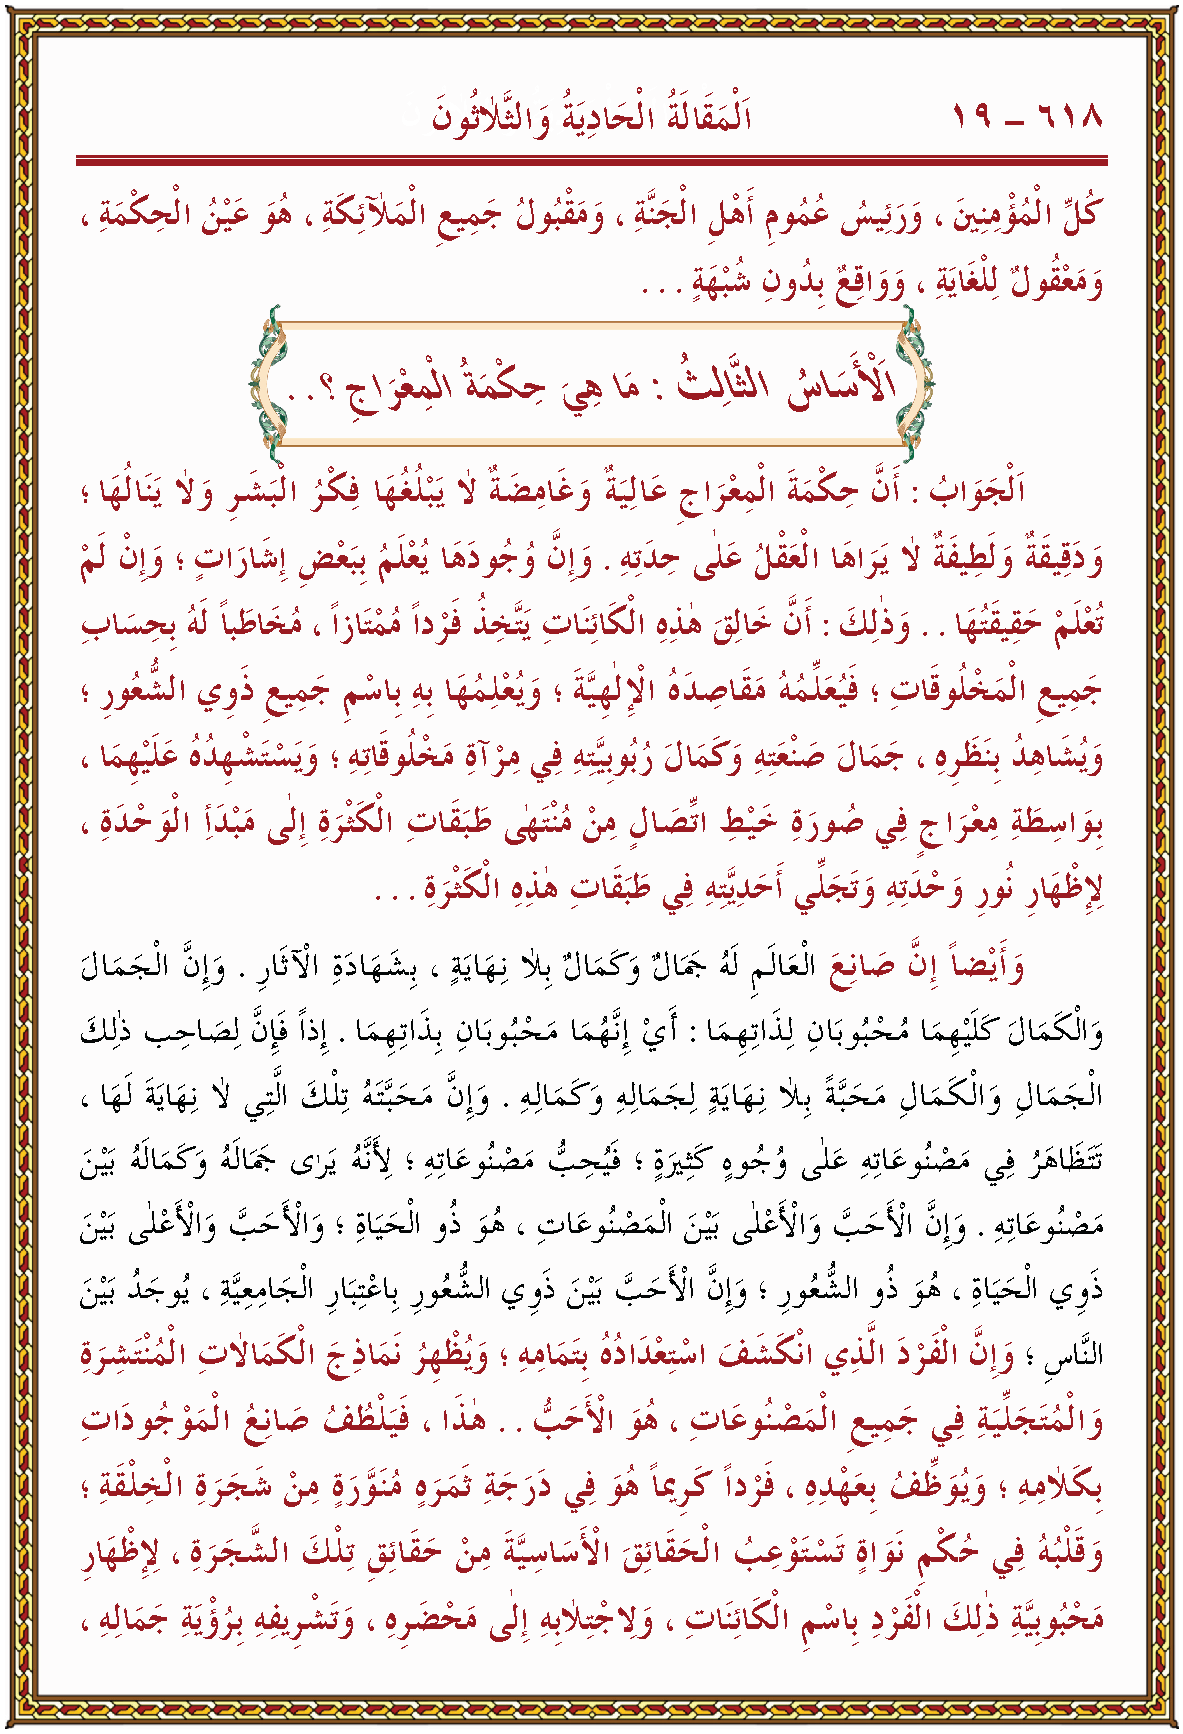 ٦١٨ – ١٩ اَلْمَقَالَةُ الْحَادِيَةُ وَالثَّلاٰثُونَ
كُلِّ الْمُؤْمِنِينَ ، وَرَئِيسُ عُمُومِ أَهْلِ الْجَنَّةِ ، وَمَقْبُولُ جَمِيعِ الْمَلآئِكَةِ ، هُوَ عَيْنُ الْحِكْمَةِ ،
وَمَعْقُولٌ لِلْغَايَةِ ، وَوَاقِعٌ بِدُونِ شُبْهَةٍ . . .
اَلْأَسَاسُ الثَّالِثُ : مَا هِيَ حِكْمَةُ الْمِعْرَاجِ ؟ . .
اَلْجَوَابُ : أَنَّ حِكْمَةَ الْمِعْرَاجِ عَالِيَةٌ وَغَامِضَةٌ لاٰ يَبْلُغُهَا فِكْرُ الْبَشَرِ وَلاٰ يَنَالُهَا ؛
وَدَقِيقَةٌ وَلَطِيفَةٌ لاٰ يَرَاهَا الْعَقْلُ عَلٰى حِدَتِهِ . وَإِنَّ وُجُودَهَا يُعْلَمُ بِبَعْضِ إِشَارَاتٍ ؛ وَإِنْ لَمْ
تُعْلَمْ حَقِيقَتُهَا . . وَذٰلِكَ : أَنَّ خَالِقَ هٰذِهِ الْكَائِنَاتِ يَتَّخِذُ فَرْداً مُمْتَازاً ، مُخَاطَباً لَهُ بِحِسَابِ
جَمِيعِ الْمَخْلُوقَاتِ ؛ فَيُعَلِّمُهُ مَقَاصِدَهُ الْإِلٰهِيَّةَ ؛ وَيُعْلِمُهَا بِهِ بِاسْمِ جَمِيعِ ذَوِي الشُّعُورِ ؛
وَيُشَاهِدُ بِنَظَرِهِ ، جَمَالَ صَنْعَتِهِ وَكَمَالَ رُبُوبِيَّتِهِ فِي مِرْآةِ مَخْلُوقَاتِهِ ؛ وَيَسْتَشْهِدُهُ عَلَيْهِمَا ،
بِوَاسِطَةِ مِعْرَاجٍ فِي صُورَةِ خَيْطِ اتِّصَالٍ مِنْ مُنْتَهٰى طَبَقَاتِ الْكَثْرَةِ إِلٰى مَبْدَأِ الْوَحْدَةِ ،
لِإِظْهَارِ نُورِ وَحْدَتِهِ وَتَجَلِّي أَحَدِيَّتِهِ فِي طَبَقَاتِ هٰذِهِ الْكَثْرَةِ . . .
وَأَيْضاً إِنَّ صَانِعَ الْعَالَمِ لَهُ جَمَالٌ وَكَمَالٌ بِلاٰ نِهَايَةٍ ، بِشَهَادَةِ الْآثَارِ . وَإِنَّ الْجَمَالَ
وَالْكَمَالَ كَلَيْهِمَا مُحْبُوبَانِ لِذَاتِهِمَا : أَيْ إِنَّهُمَا مَحْبُوبَانِ بِذَاتِهِمَا . إِذاً فَإِنَّ لِصَاحِبِ ذٰلِكَ
الْجَمَالِ وَالْكَمَالِ مَحَبَّةً بِلاٰ نِهَايَةٍ لِجَمَالِهِ وَكَمَالِهِ . وَإِنَّ مَحَبَّتَهُ تِلْكَ الَّتِي لاٰ نِهَايَةَ لَهَا ،
تَتَظَاهَرُ فِي مَصْنُوعَاتِهِ عَلٰى وُجُوهٍ كَثِيرَةٍ ؛ فَيُحِبُّ مَصْنُوعَاتِهِ ؛ لِأَنَّهُ يَرٰى جَمَالَهُ وَكَمَالَهُ بَيْنَ
مَصْنُوعَاتِهِ . وَإِنَّ الْأَحَبَّ وَالْأَعْلٰى بَيْنَ الْمَصْنُوعَاتِ ، هُوَ ذُو الْحَيَاةِ ؛ وَالْأَحَبَّ وَالْأَعْلٰى بَيْنَ
ذَوِي الْحَيَاةِ ، هُوَ ذُو الشُّعُورِ ؛ وَإِنَّ الْأَحَبَّ بَيْنَ ذَوِي الشُّعُورِ بِاعْتِبَارِ الْجَامِعِيَّةِ ، يُوجَدُ بَيْنَ
النَّاسِ ؛ وَإِنَّ الْفَرْدَ الَّذِي انْكَشَفَ اسْتِعْدَادُهُ بِتَمَامِهِ ؛ وَيُظْهِرُ نَمَاذِجَ الْكَمَالاٰتِ الْمُنْتَشِرَةِ
وَالْمُتَجَلِّيَةِ فِي جَمِيعِ الْمَصْنُوعَاتِ ، هُوَ الْأَحَبُّ . . هٰذَا ، فَيَلْطُفُ صَانِعُ الْمَوْجُودَاتِ
بِكَلاٰمِهِ ؛ وَيُوَظِّفُ بِعَهْدِهِ ، فَرْداً كَرِيماً هُوَ فِي دَرَجَةِ ثَمَرَةٍ مُنَوَّرَةٍ مِنْ شَجَرَةِ الْخِلْقَةِ ؛
وَقَلْبُهُ فِي حُكْمِ نَوَاةٍ تَسْتَوْعِبُ الْحَقَائِقَ الْأَسَاسِيَّةَ مِنْ حَقَائِقِ تِلْكَ الشَّجَرَةِ ، لِإِظْهَارِ
مَحْبُوبِيَّةِ ذٰلِكَ الْفَرْدِ بِاسْمِ الْكَائِنَاتِ ، وَلِاجْتِلاٰبِهِ إِلٰى مَحْضَرِهِ ، وَتَشْرِيفِهِ بِرُؤْيَةِ جَمَالِهِ ،